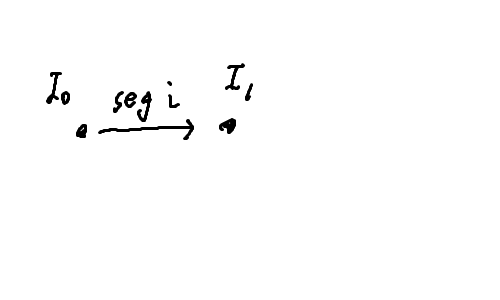 I₀ seg i I₁